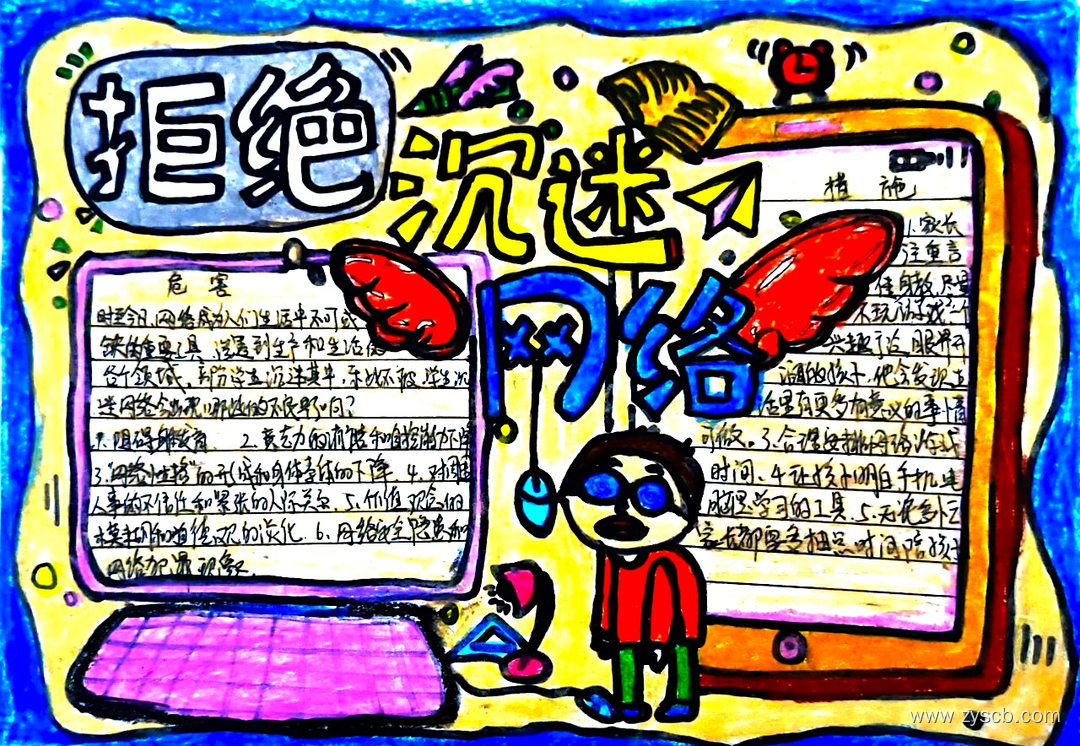 拒绝
沉迷
网络
危害
时至今日,网络成为人们生活中不可或
缺的重要工具,渗透到生产和生活的
各个领域,部分学生沉迷其中,不能自拔,学生沉
迷网络会出现哪些的不良影响?
1.阻碍身体发育 2.意志力的消陵和自控能力下降
3."网络性格"的形成和身体素质的下降 4.对周围
人事的不信任和紧张的人际关系 5.价值观念的
模糊和道德观的淡化 6.网络安全隐患和
网络犯罪现象.
措施
1.家长
注重言
不玩游戏 2.
兴趣广泛,眼界开
阔的孩子,他会发现生
活里有更多有意义的事情
可做。3.合理安排网络游戏
时间、4.让孩子明白手机、电
脑是学习的工具.5.无论多么
家长都要多抽点时间陪孩子
www.zyscb.com